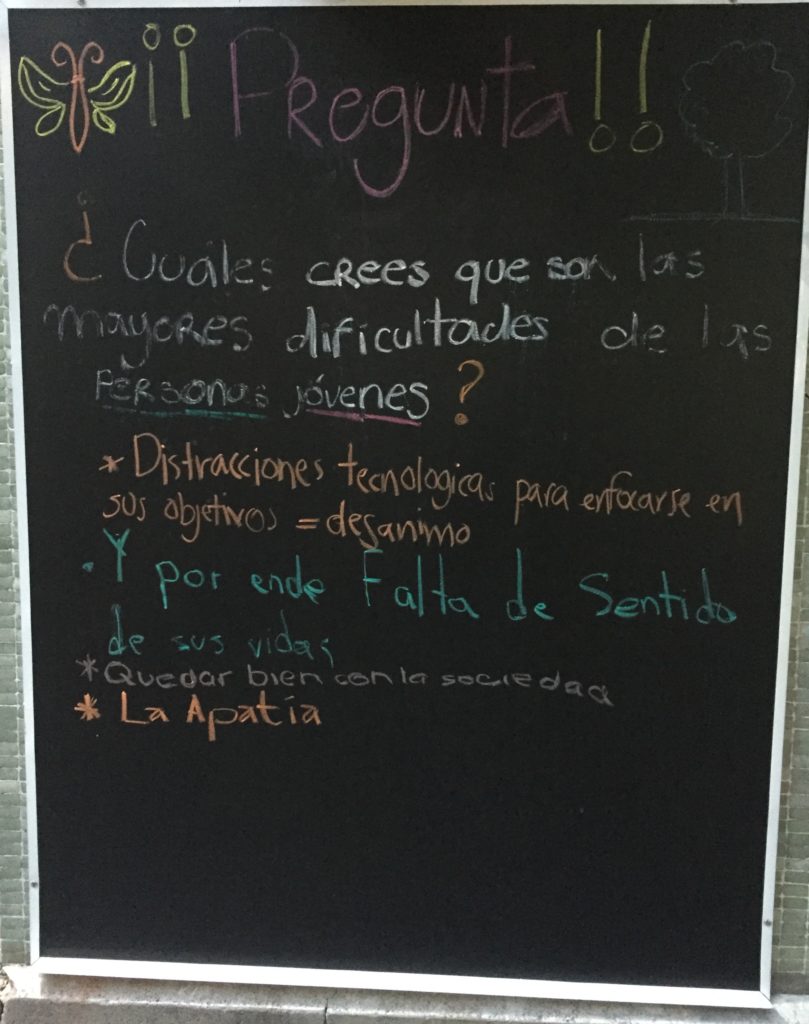 ¡¡ Pregunta !!
¿Cuáles crees que son las
mayores dificultades de las
Personas jóvenes?
* Distracciones tecnologicas para enfocarse en
sus objetivos = desanimo
. Y por ende Falta de Sentido
de sus vidas
* Quedar bien con la sociedad
* La Apatía